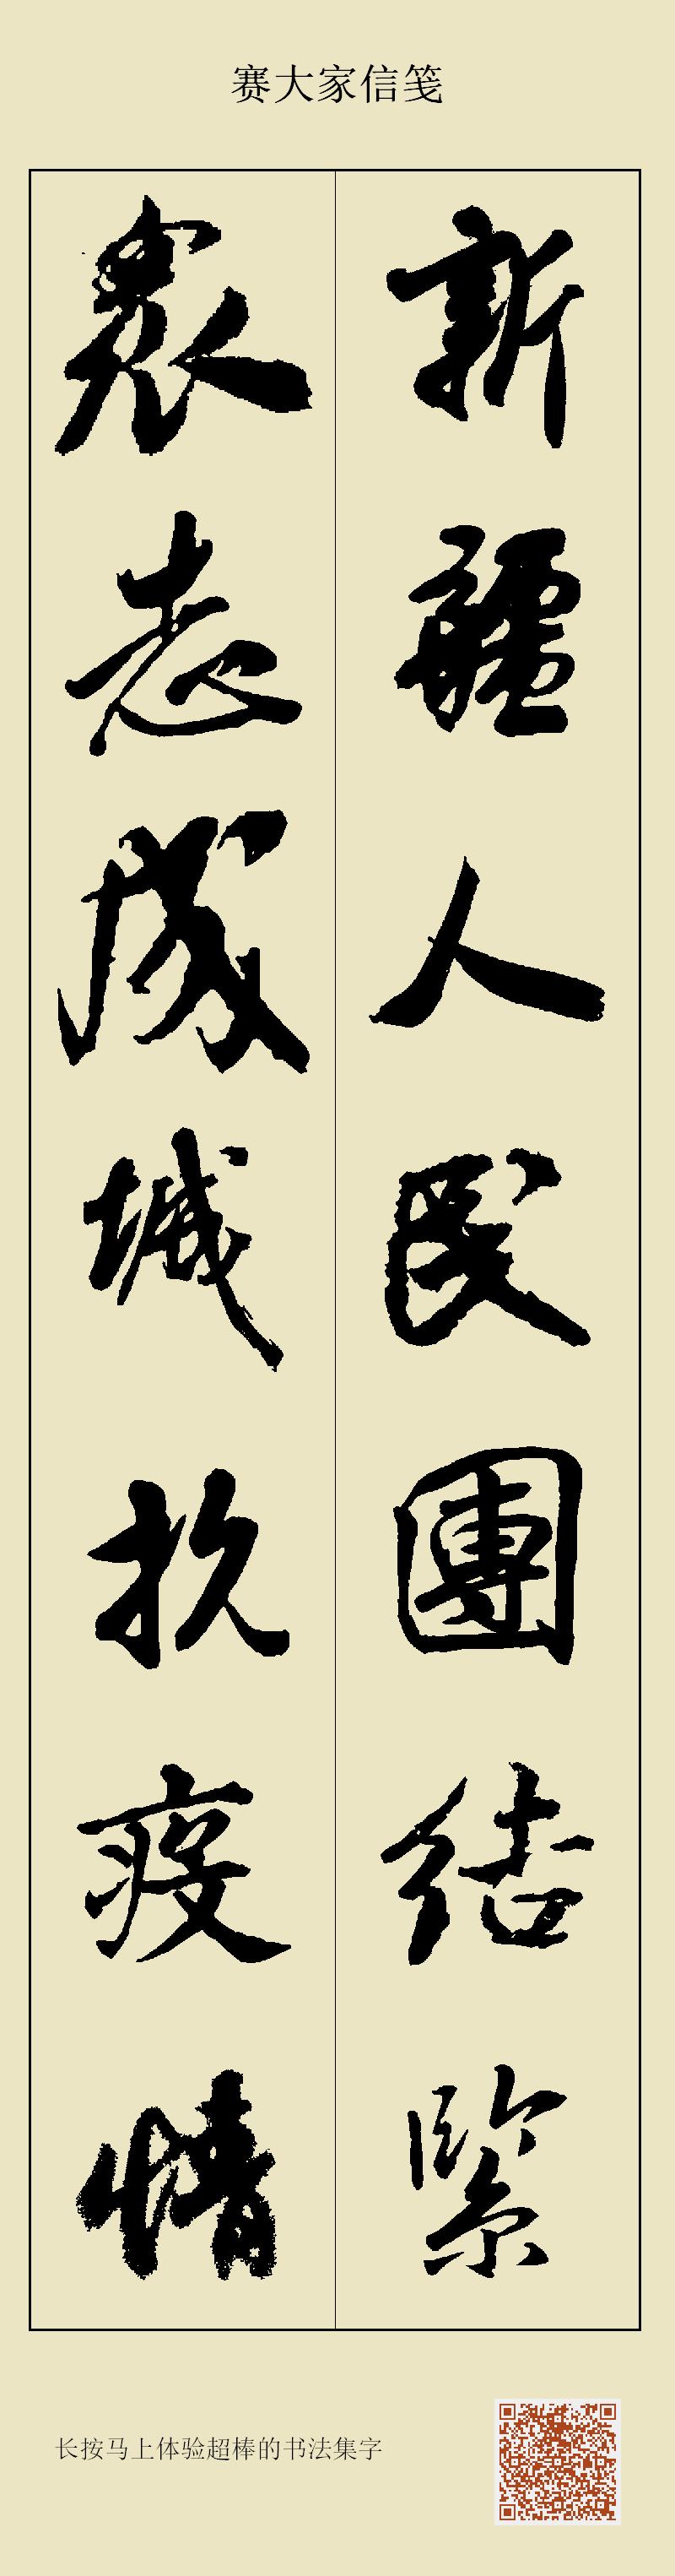 赛大家信笺
新疆人民團结緊
衆志成城抗疫情
长按马上体验超棒的书法集字